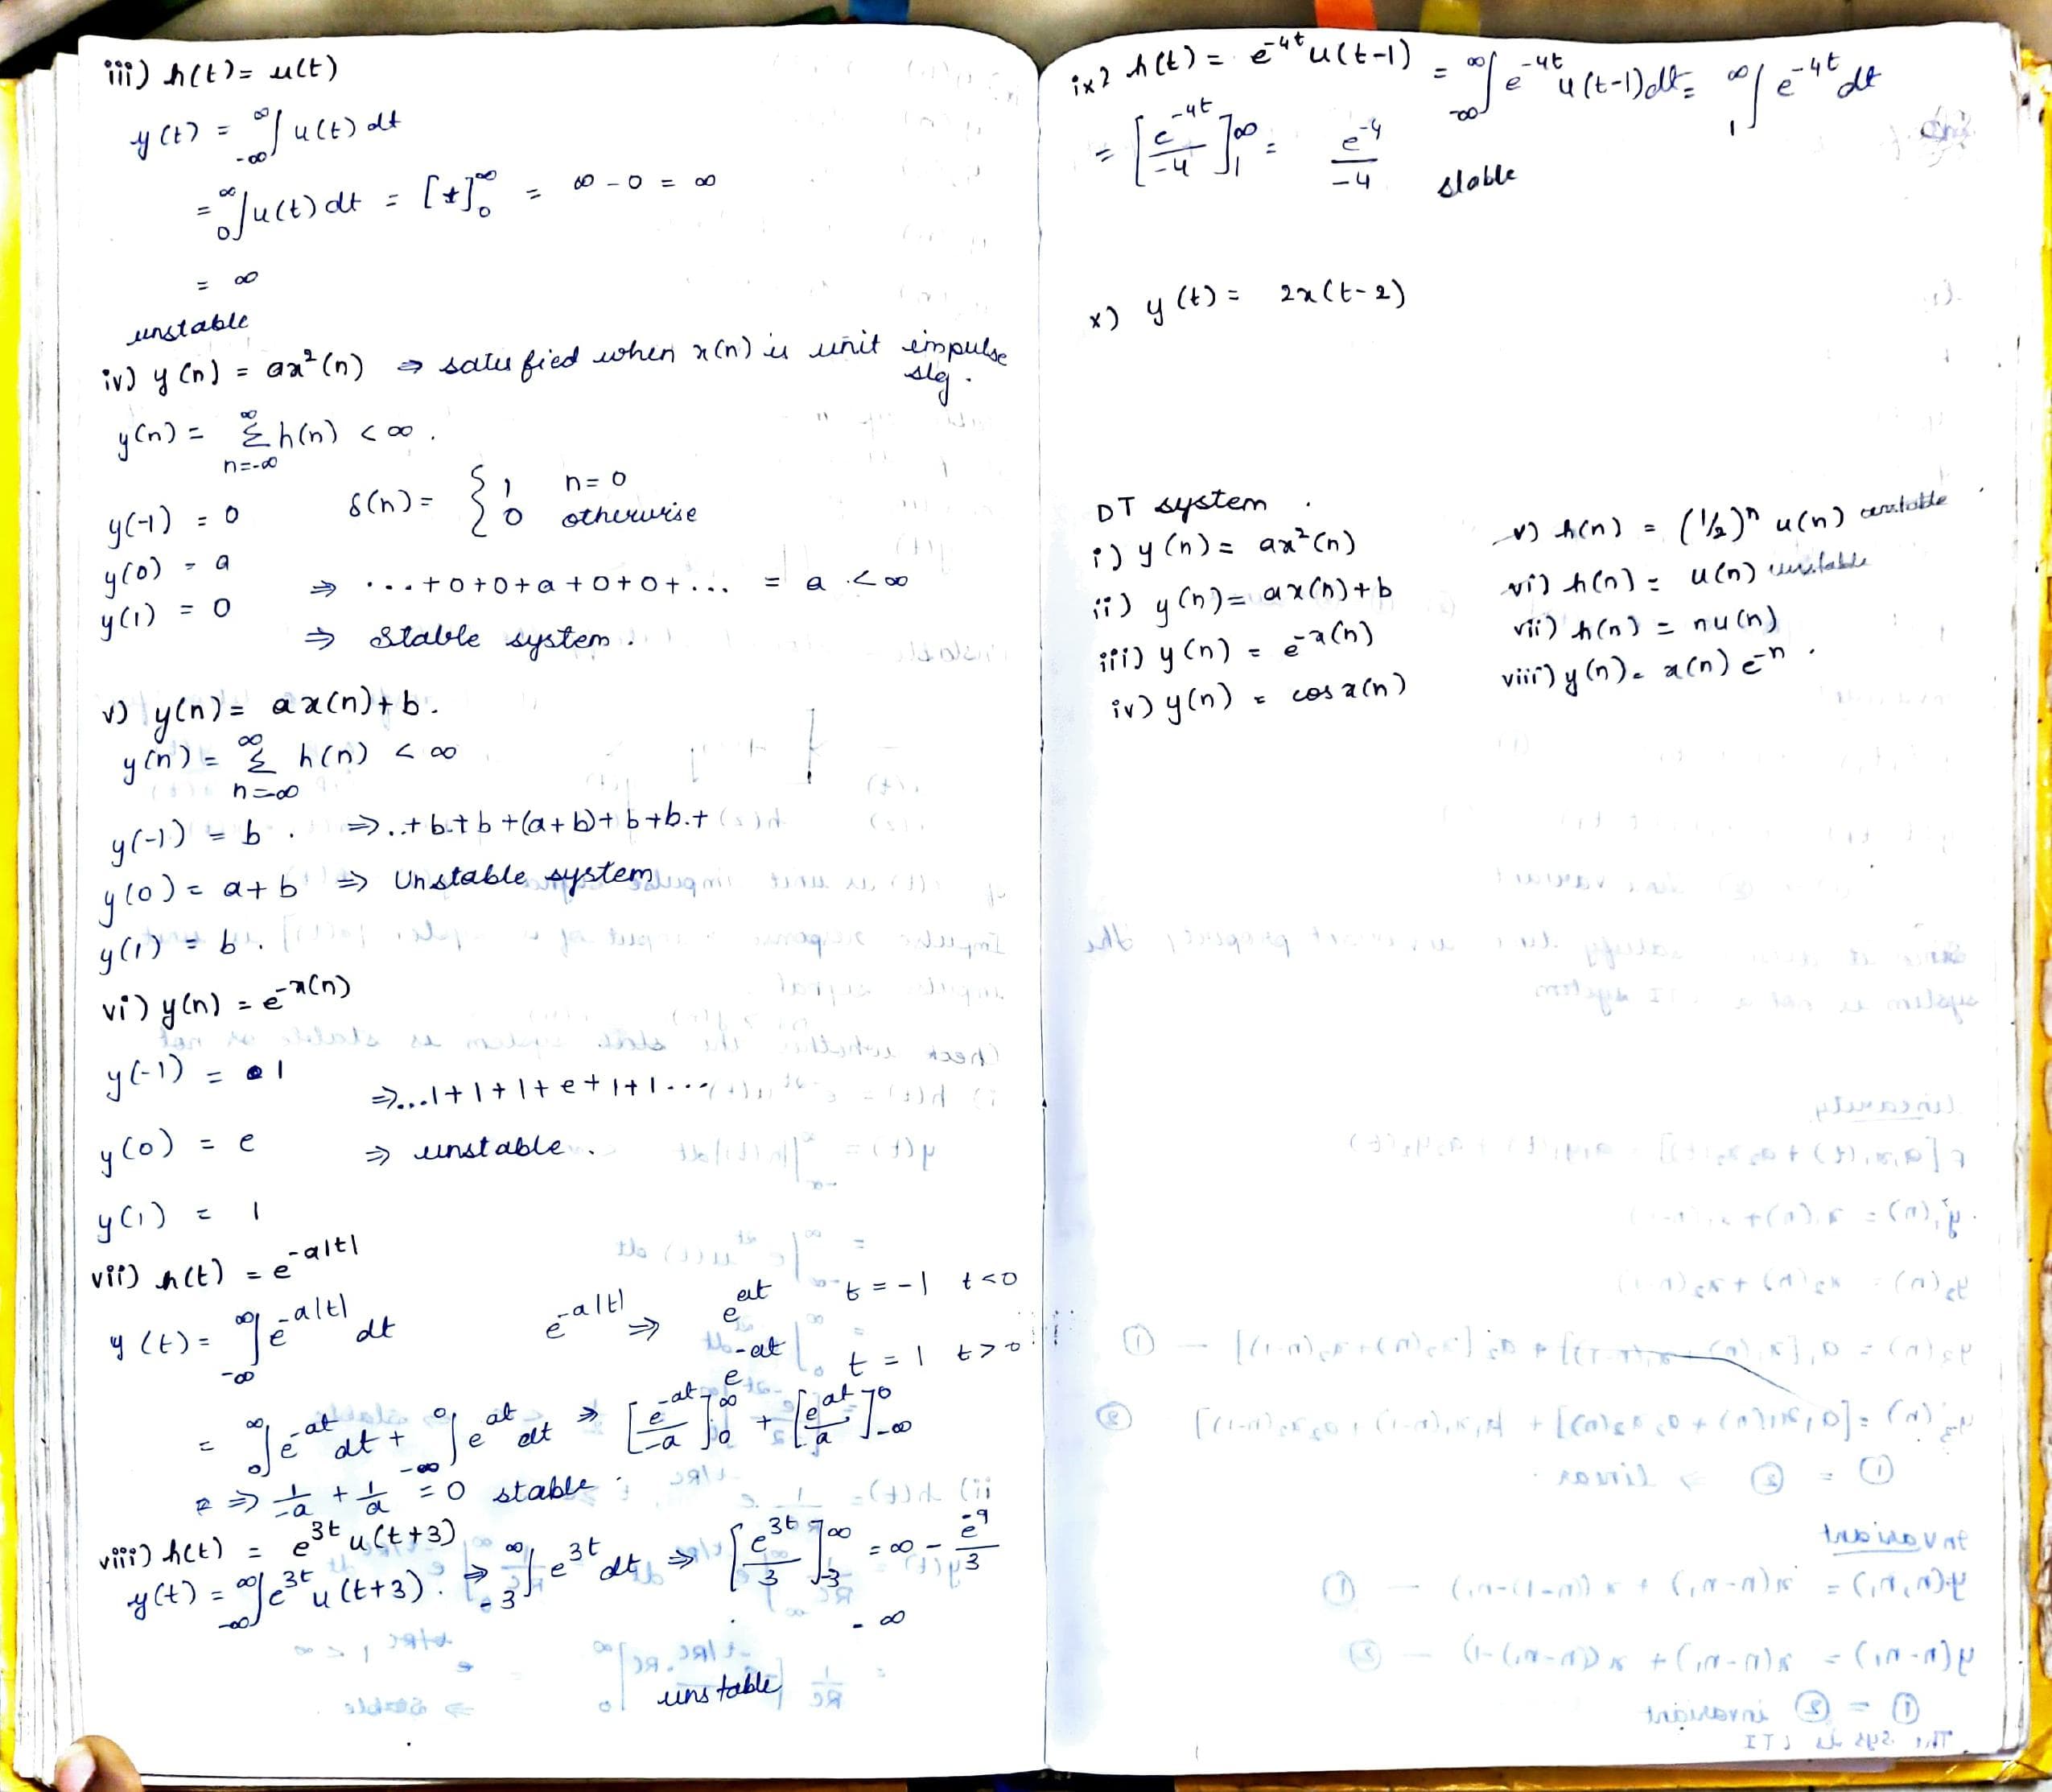 iii) h(t) = u(t)
y(t) = ∞∫-∞ u(t) dt
= ∞∫0 u(t) dt = [t]∞0 = ∞ - 0 = ∞
= ∞
unstable
iv) y(n) = ax²(n) ⇒ satisfied when x(n) is unit impulse
sig.
y(n) = ∞Σn=-∞ h(n) < ∞.
y(-1) = 0 δ(n) = { 1 n=0
0 otherwise
y(0) = a
y(1) = 0 ⇒ ...+0+0+a+0+0+... = a < ∞
⇒ Stable system.
v) y(n) = ax(n)+b.
y(n) = ∞Σn=-∞ h(n) < ∞
y(-1) = b. ⇒ ..+b+b+(a+b)+b+b.+
y(0) = a+b ⇒ Unstable system
y(1) = b.
vi) y(n) = e^-x(n)
y(-1) = 1
⇒...1+1+1+e+1+1...
y(0) = e ⇒ unstable.
y(1) = 1
vii) h(t) = e^-a|t|
y(t) = ∞∫-∞ e^-a|t| dt e^-a|t| ⇒ e^at t=-1 t<0
e^-at t=1 t>0
= ∞∫0 e^-at dt + 0∫-∞ e^at dt ⇒ [e^-at/-a]∞0 + [e^at/a]0-∞
⇒ 1/-a + 1/a = 0 stable
viii) h(t) = e^3t u(t+3)
y(t) = ∞∫-∞ e^3t u(t+3). ⇒ ∞∫-3 e^3t dt ⇒ [e^3t/3]∞-3 = ∞ - e^-9/3
- ∞
unstable
ix) h(t) = e^-4t u(t-1) = ∞∫-∞ e^-4t u(t-1)dt = ∞∫1 e^-4t dt
= [e^-4t/-4]∞1 = e^-4/-4 stable
x) y(t) = 2x(t-2)
DT system.
i) y(n) = ax²(n)
ii) y(n) = ax(n)+b
iii) y(n) = e^-x(n)
iv) y(n) = cos x(n)
v) h(n) = (1/2)^n u(n)
vi) h(n) = u(n) unstable
vii) h(n) = nu(n)
viii) y(n) = x(n) e^-n.